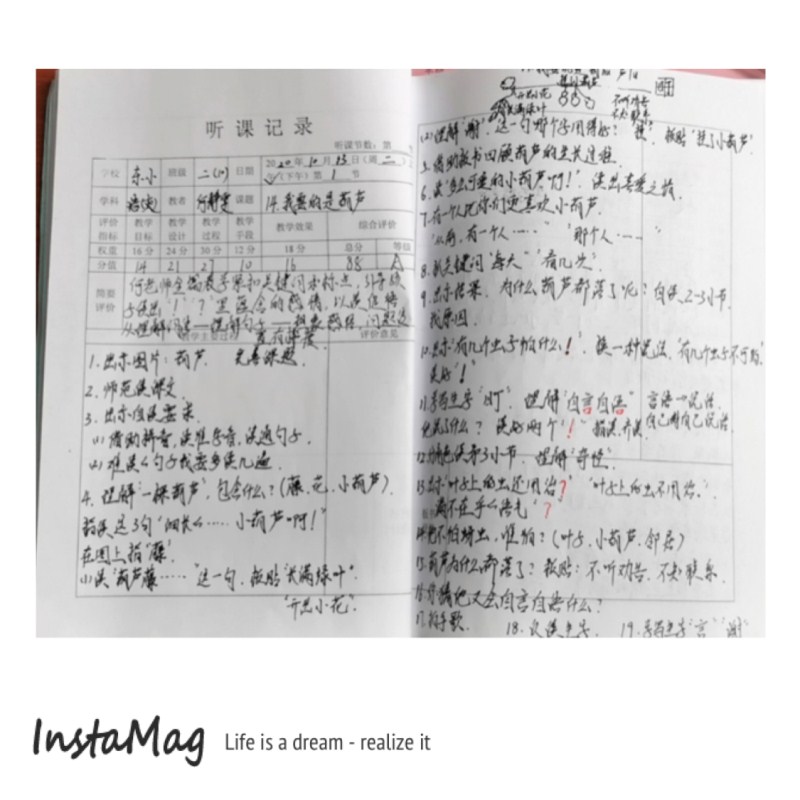 听课记录
听课节数：第
学校 东小 班级 二(1) 日期 2020年10月13日(周二)上午(下午)第1节
学科 语文 教者 何静雯 课题 14.我要的是葫芦
评价指标 教学目标 教学设计 教学过程 教学手段 教学效果 综合评价
权重 16分 24分 30分 12分 18分 总分 等级
分值 14 21 27 10 16 88 A
简要评价
何老师全篇表
和关键词
标点，引导
子读出“！”“？”里蕴含的感情，以读促
从理解词语—理解句子
教学主要过
评价意见
1.出示图片：葫芦. 完善课题.
2.师范读课文.
3.出示自读要求.
(1)借助拼音，读准字音，读通句子.
(2)难读的句子我要多读几遍.
4.理解“一棵葫芦”，包含什么？(藤、花、小葫芦).
指读这3句“细长的……小葫芦啊！”
在图上指“藤”.
(1)读“葫芦藤……”这一句，板贴“长满绿叶”.
“开出小花”.
开出小花
长满绿叶
不听劝告
不知联系
(2)理解“谢”.这一句哪个字用得好？“挂”. 板贴“挂了小葫芦”.
5.借助板书回顾葫芦的生长过程.
6.读“多么可爱的小葫芦啊！”.读出喜爱之情.
7.有一个人比你们更喜欢小葫芦.
“从前，有一个人……”“那个人……”
8.抓关键词“每天”“看几次”.
9.出示结果. 为什么葫芦都落了呢？自读2-3小节.
找原因.
10.出示“有几个虫子怕什么！”.换一种说法，“有几个虫子不可怕.”
美好“！”
11.学习生字“盯”.理解“自言自语” 言语—说话.
他说了什么？读好两个“！”指读.齐读. 自己对自己说话.
读第3小节. 理解“奇怪”.
13.出示“叶子上的虫还用治？”“叶子上的虫不用治.”
满不在乎的语气“？”
14.他不怕蚜虫，谁怕？(叶子、小葫芦、邻居)
15.葫芦为什么都落了？板贴：不听劝告、不知联系.
16.你猜他又会自言自语什么？
17.拍手歌. 18.认读生字. 19.学写生字“言”“谢”
InstaMag Life is a dream - realize it